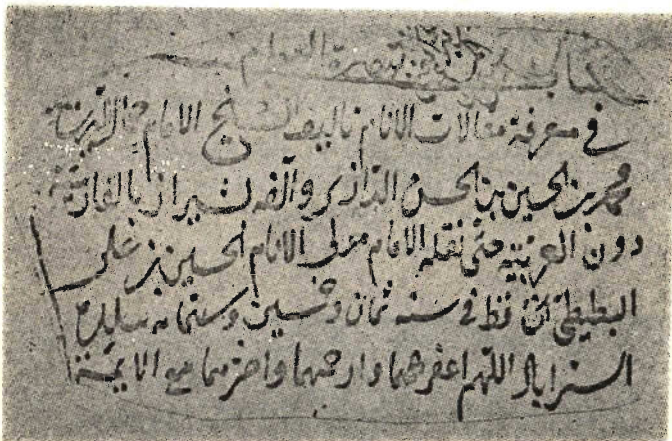 كتاب تبصرة العوام
في معرفة مقالات الانام تاليف الشيخ الامام
محمد بن الحسين بن الحسن الرازي والفه بشيراز بالفارسية
دون العربية حتى نقله الامام مولى الانام الحسين بن علي
البطيطي الحافظ في سنه ثمان وخمسين وستمائة ببلدة
استراباد اللهم اغفرهما وارحمهما واحشرهما مع الايمة